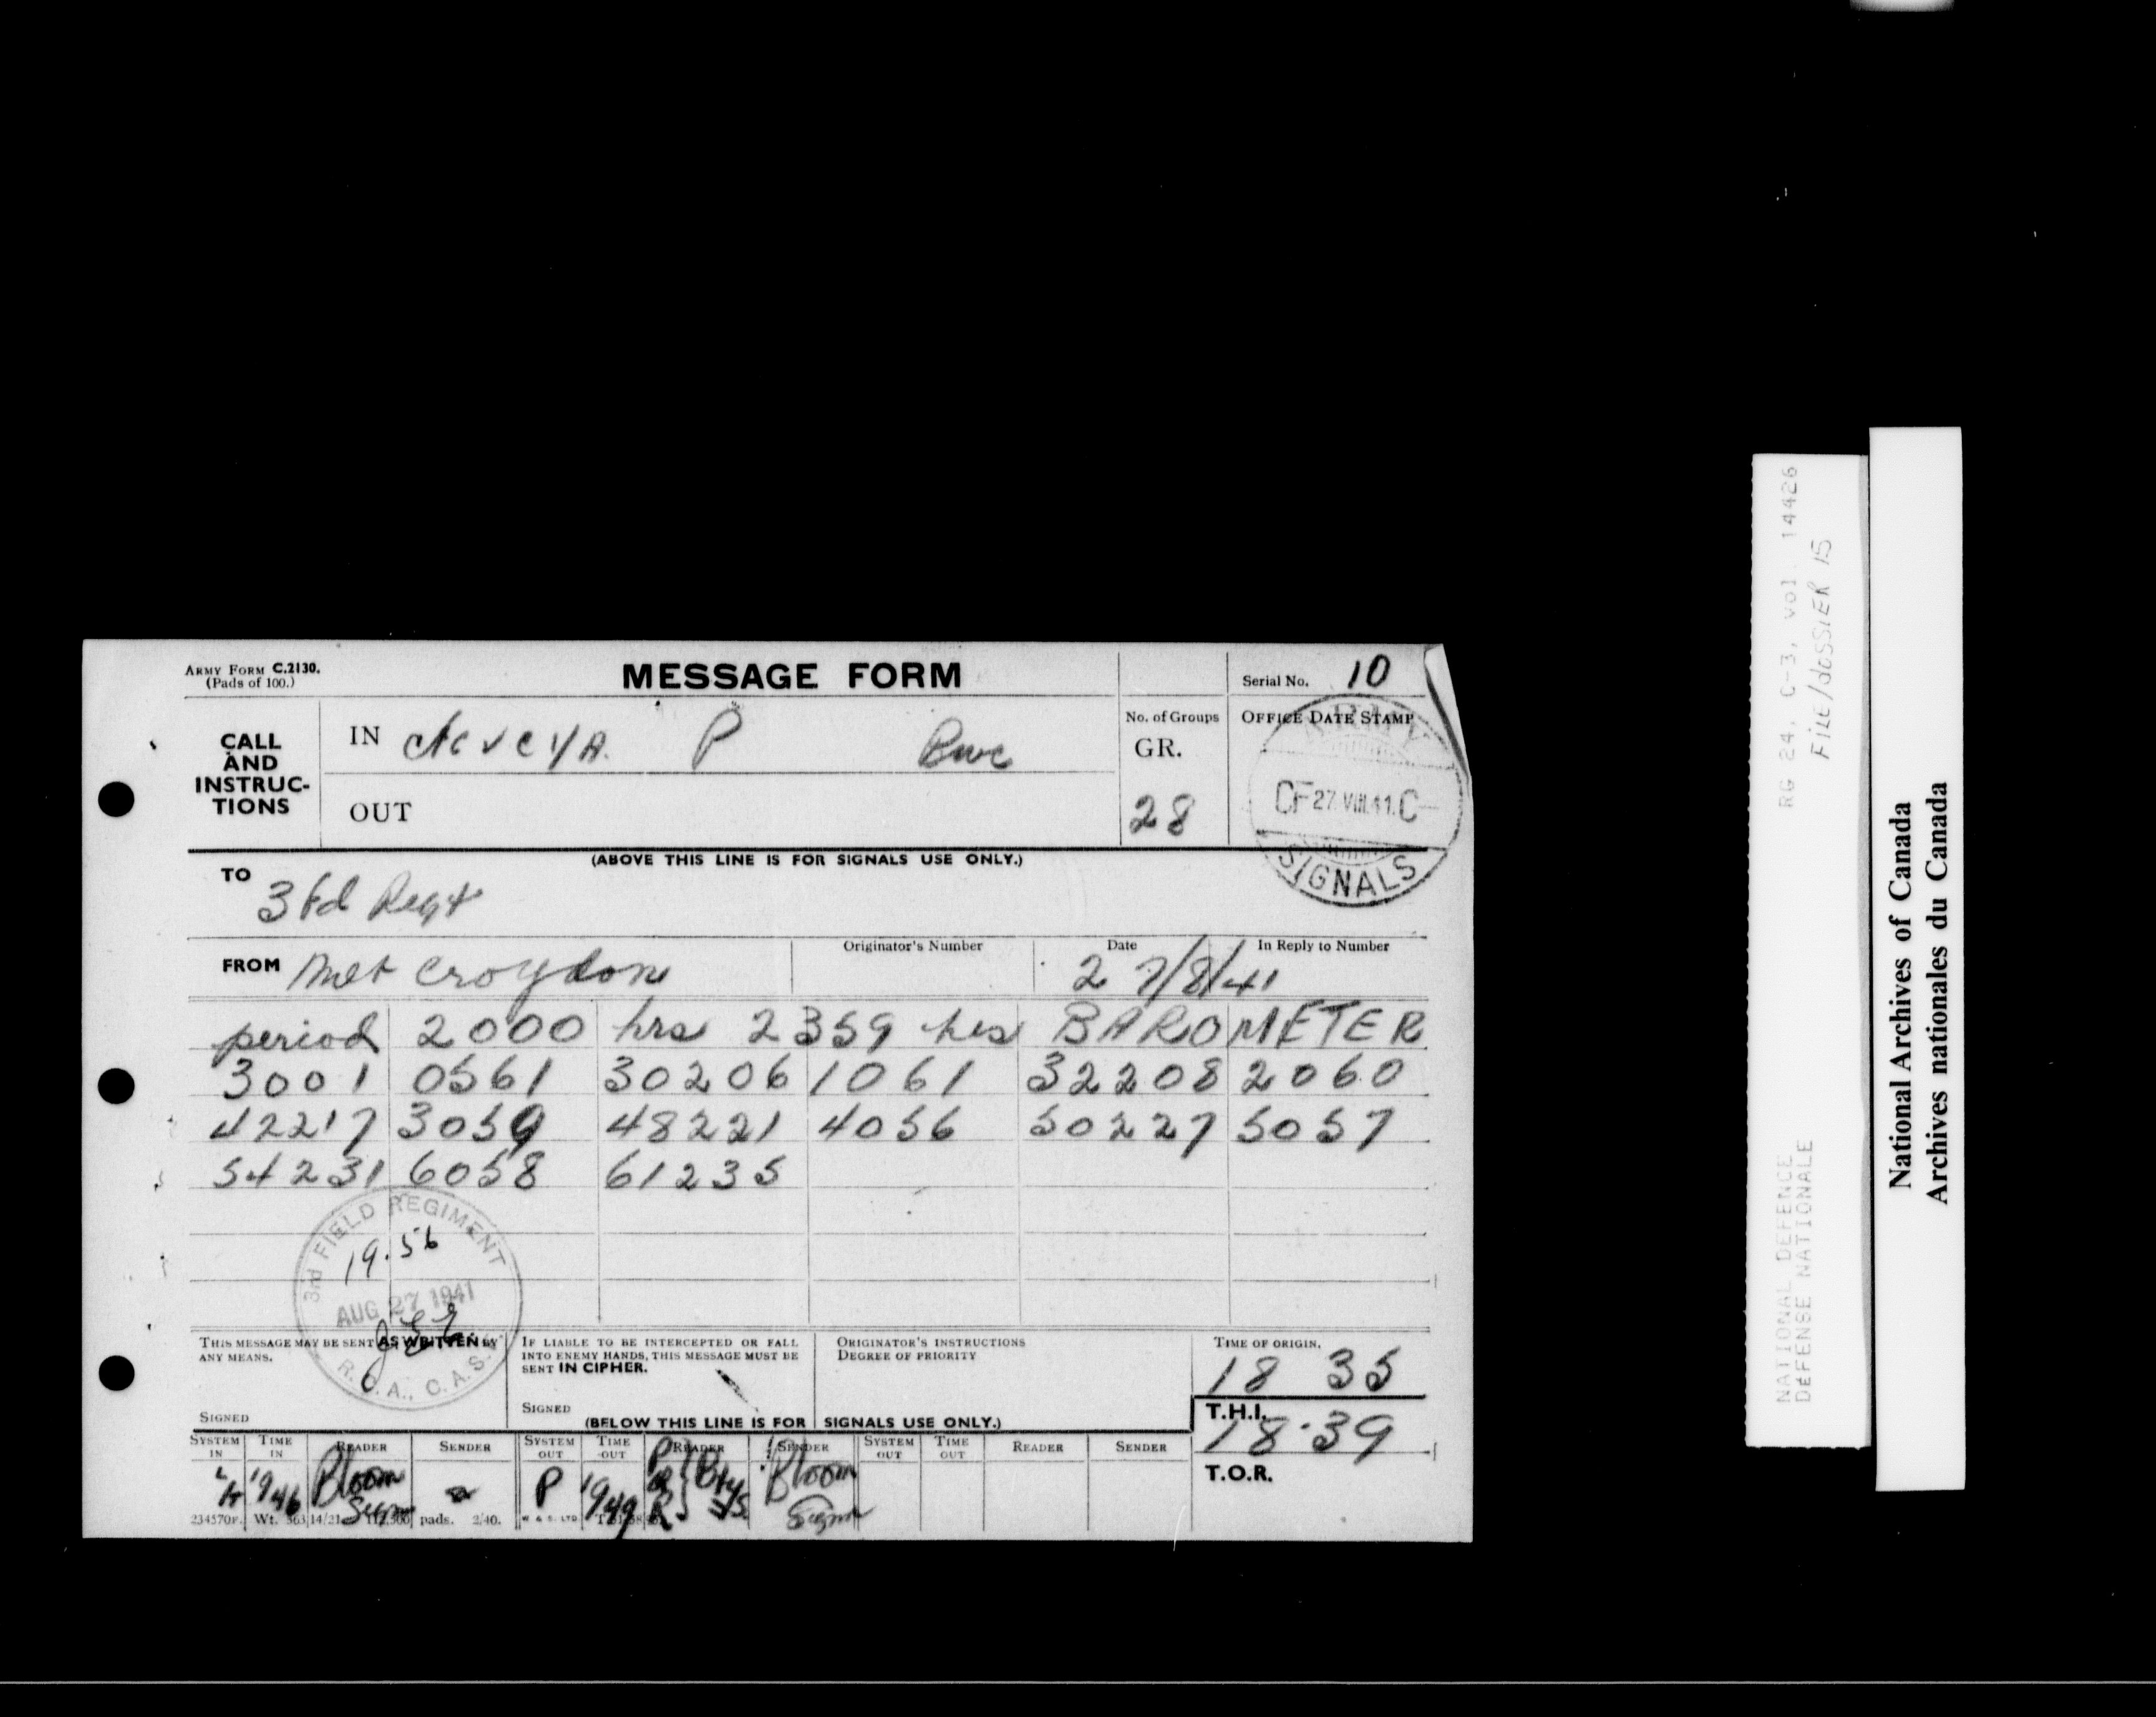 ARMY FORM C.2130.
(Pads of 100.)
MESSAGE FORM
Serial No. 10
CALL AND INSTRUC- TIONS
IN P
OUT
No. of Groups
GR.
28
OFFICE DATE STAMP
ARMY
CF 27.VIII.41.C-
SIGNALS
(ABOVE THIS LINE IS FOR SIGNALS USE ONLY.)
TO 3 Fd Regt
FROM Met Croydon
Originator's Number
Date 27/8/41
In Reply to Number
period 2000 hrs 2359 hrs BAROMETER
3001 0561 30206 1061 32208 2060
42217 3059 48221 4056 50227 5057
54231 6058 61235
3rd FIELD REGIMENT
19.56
AUG 27 1941
R.C.A., C.A.S.
THIS MESSAGE MAY BE SENT AS WRITTEN BY
ANY MEANS.
SIGNED
IF LIABLE TO BE INTERCEPTED OR FALL
INTO ENEMY HANDS, THIS MESSAGE MUST BE
SENT IN CIPHER.
SIGNED
ORIGINATOR'S INSTRUCTIONS
DEGREE OF PRIORITY
TIME OF ORIGIN.
18 35
T.H.I.
18.39
T.O.R.
(BELOW THIS LINE IS FOR SIGNALS USE ONLY.)
SYSTEM IN TIME IN READER SENDER SYSTEM OUT TIME OUT READER SENDER SYSTEM OUT TIME OUT READER SENDER
1946 Bloom P 1949 Bloom
Sigmn Sigmn
234570F. Wt. pads. 2/40. W & S. LTD.
RG 24, C-3, vol. 14426
FILE/dOSSIER 15
NATIONAL DEFENCE
DEFENSE NATIONALE
National Archives of Canada
Archives nationales du Canada